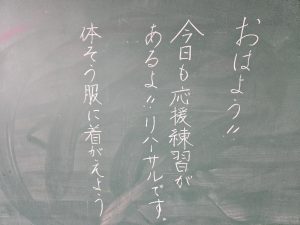 おはよう!!
今日も応援練習が
あるよ!!リハーサルです。
体そう服に着がえよう